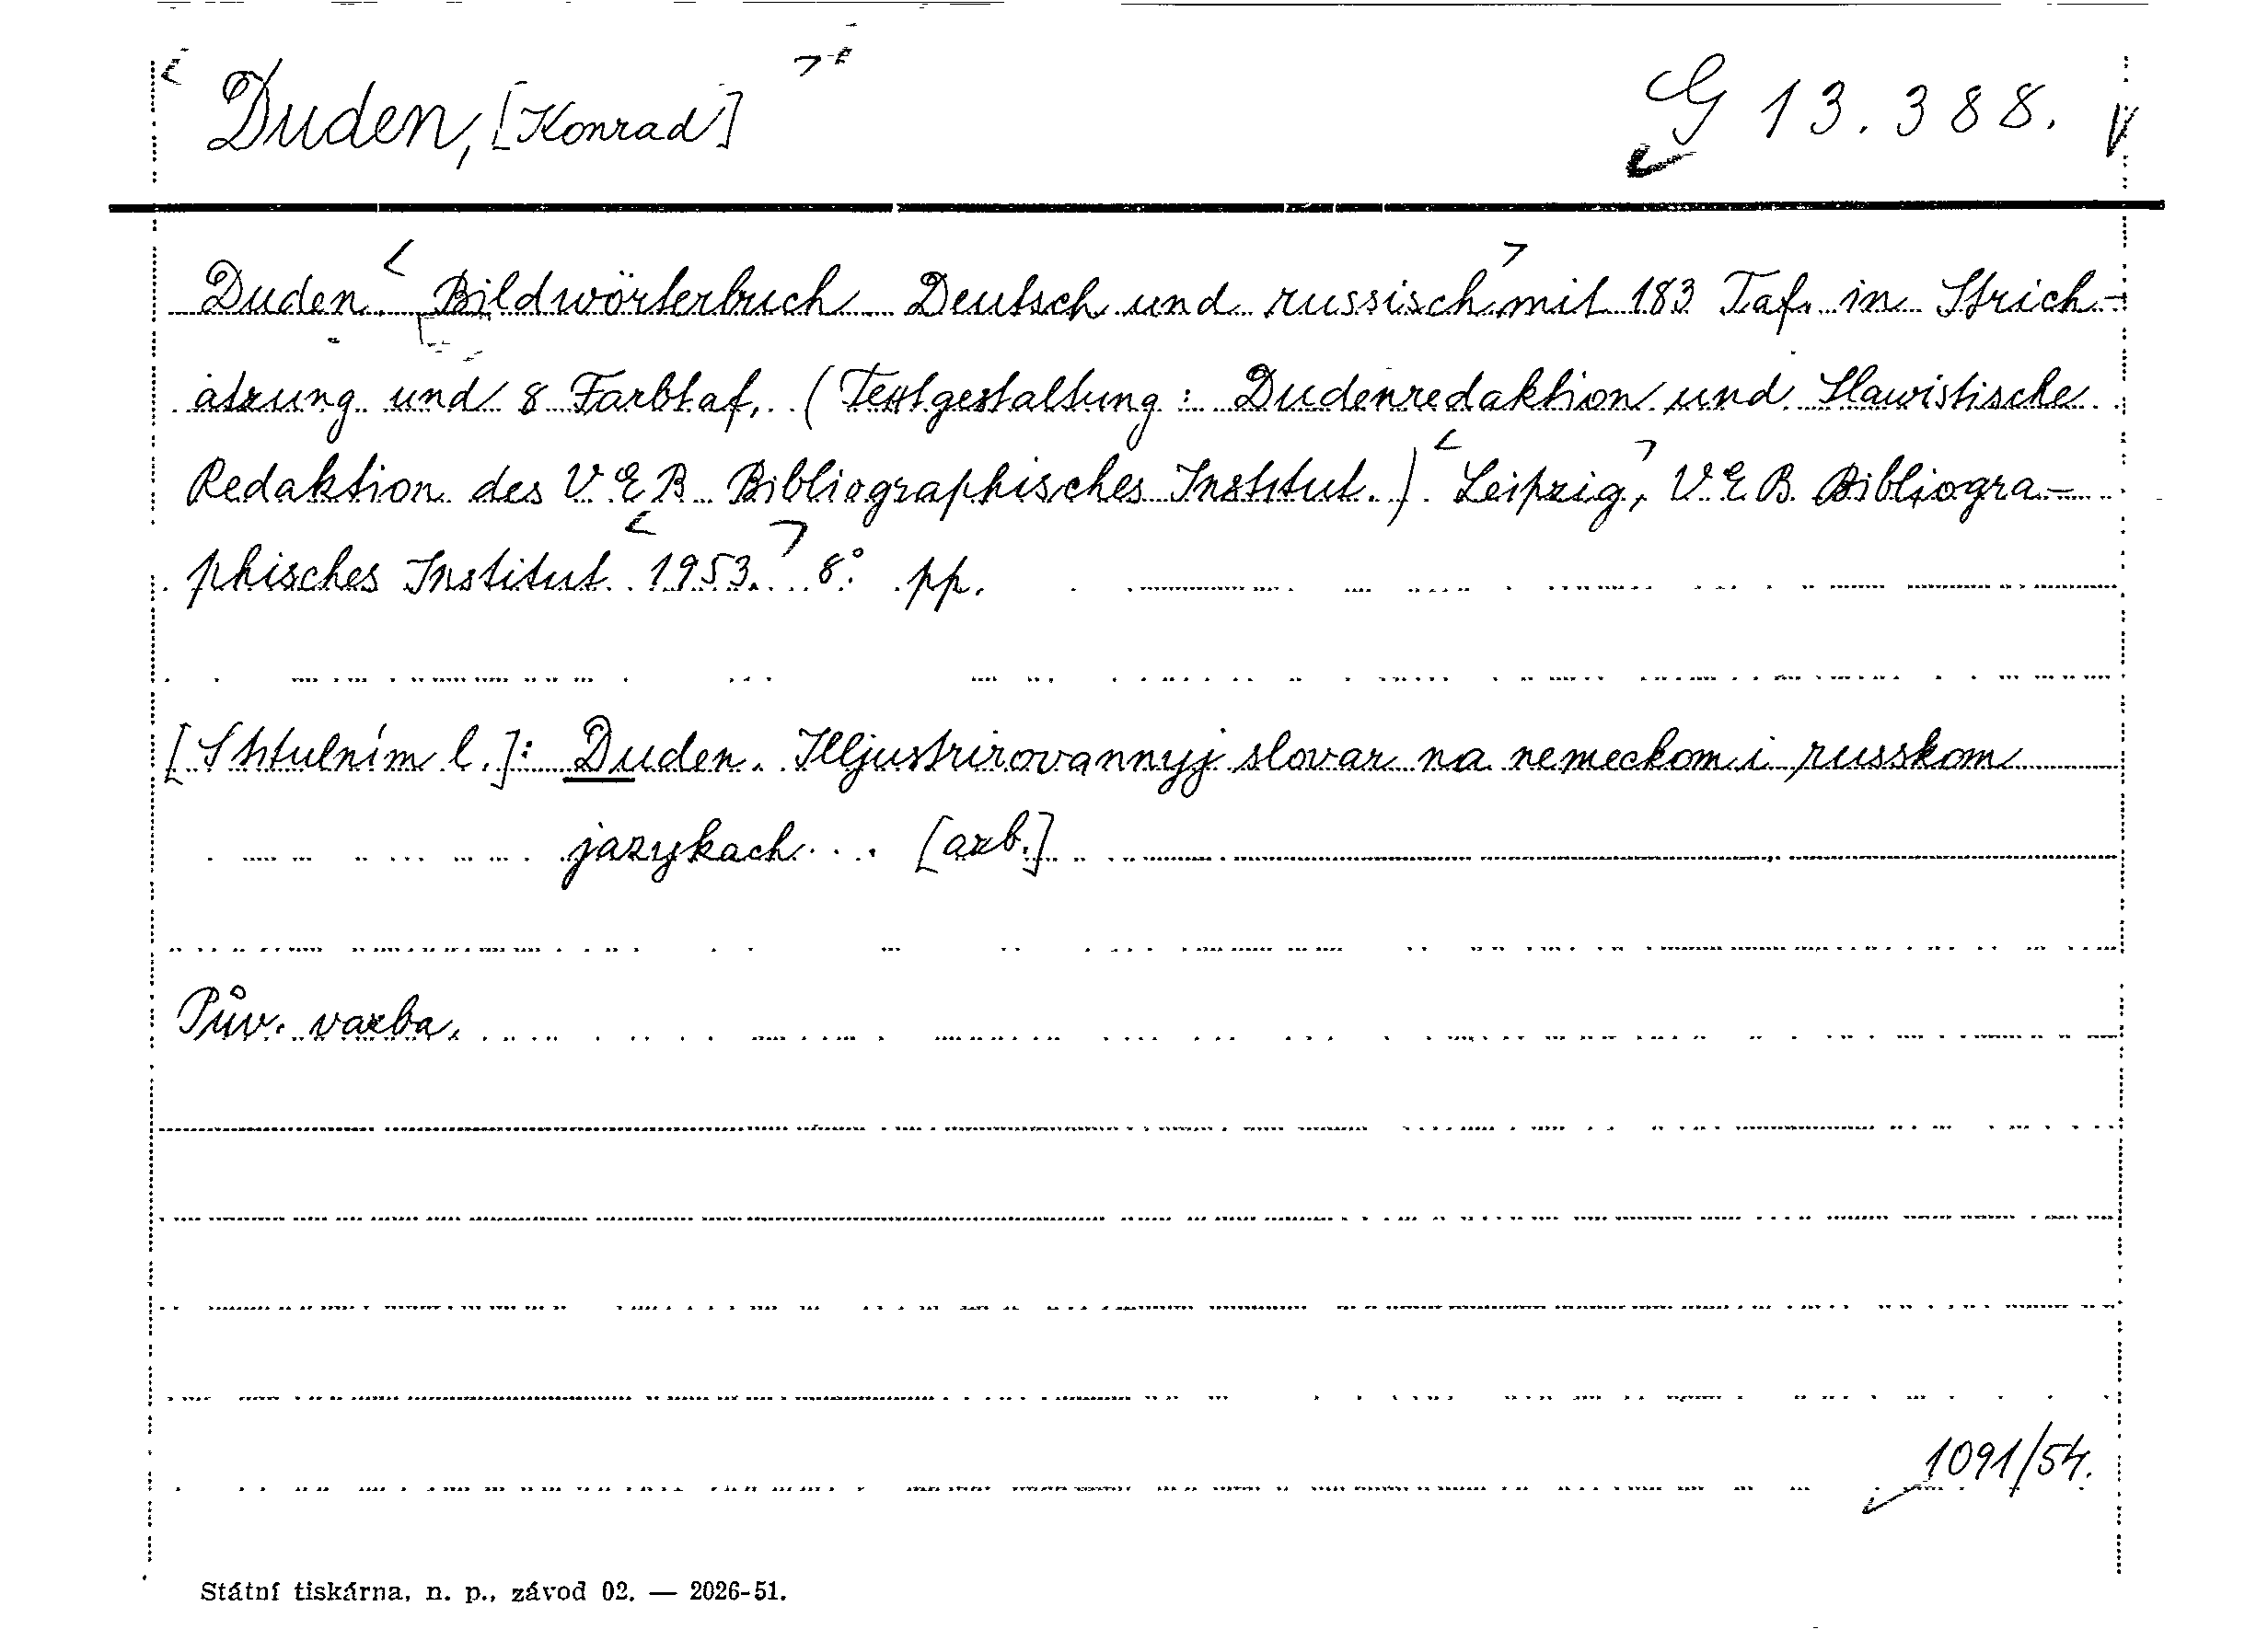 Duden, [Konrad]
G 13.388.
Duden. Bildwörterbuch. Deutsch und russisch, mit 183 Taf. in Strich-
ätzung und 8 Farbtaf. (Textgestaltung: Dudenredaktion und Slawistische
Redaktion des V E B Bibliographisches Institut.) Leipzig, V E B Bibliogra-
phisches Institut 1953. 8°. pp.
[S titulním l.]: Duden. Illjustrirovannyj slovar na nemeckom i russkom
jazykach... [azb.]
Pův. vazba.
1091/54.
Státní tiskárna, n. p., závod 02. — 2026-51.